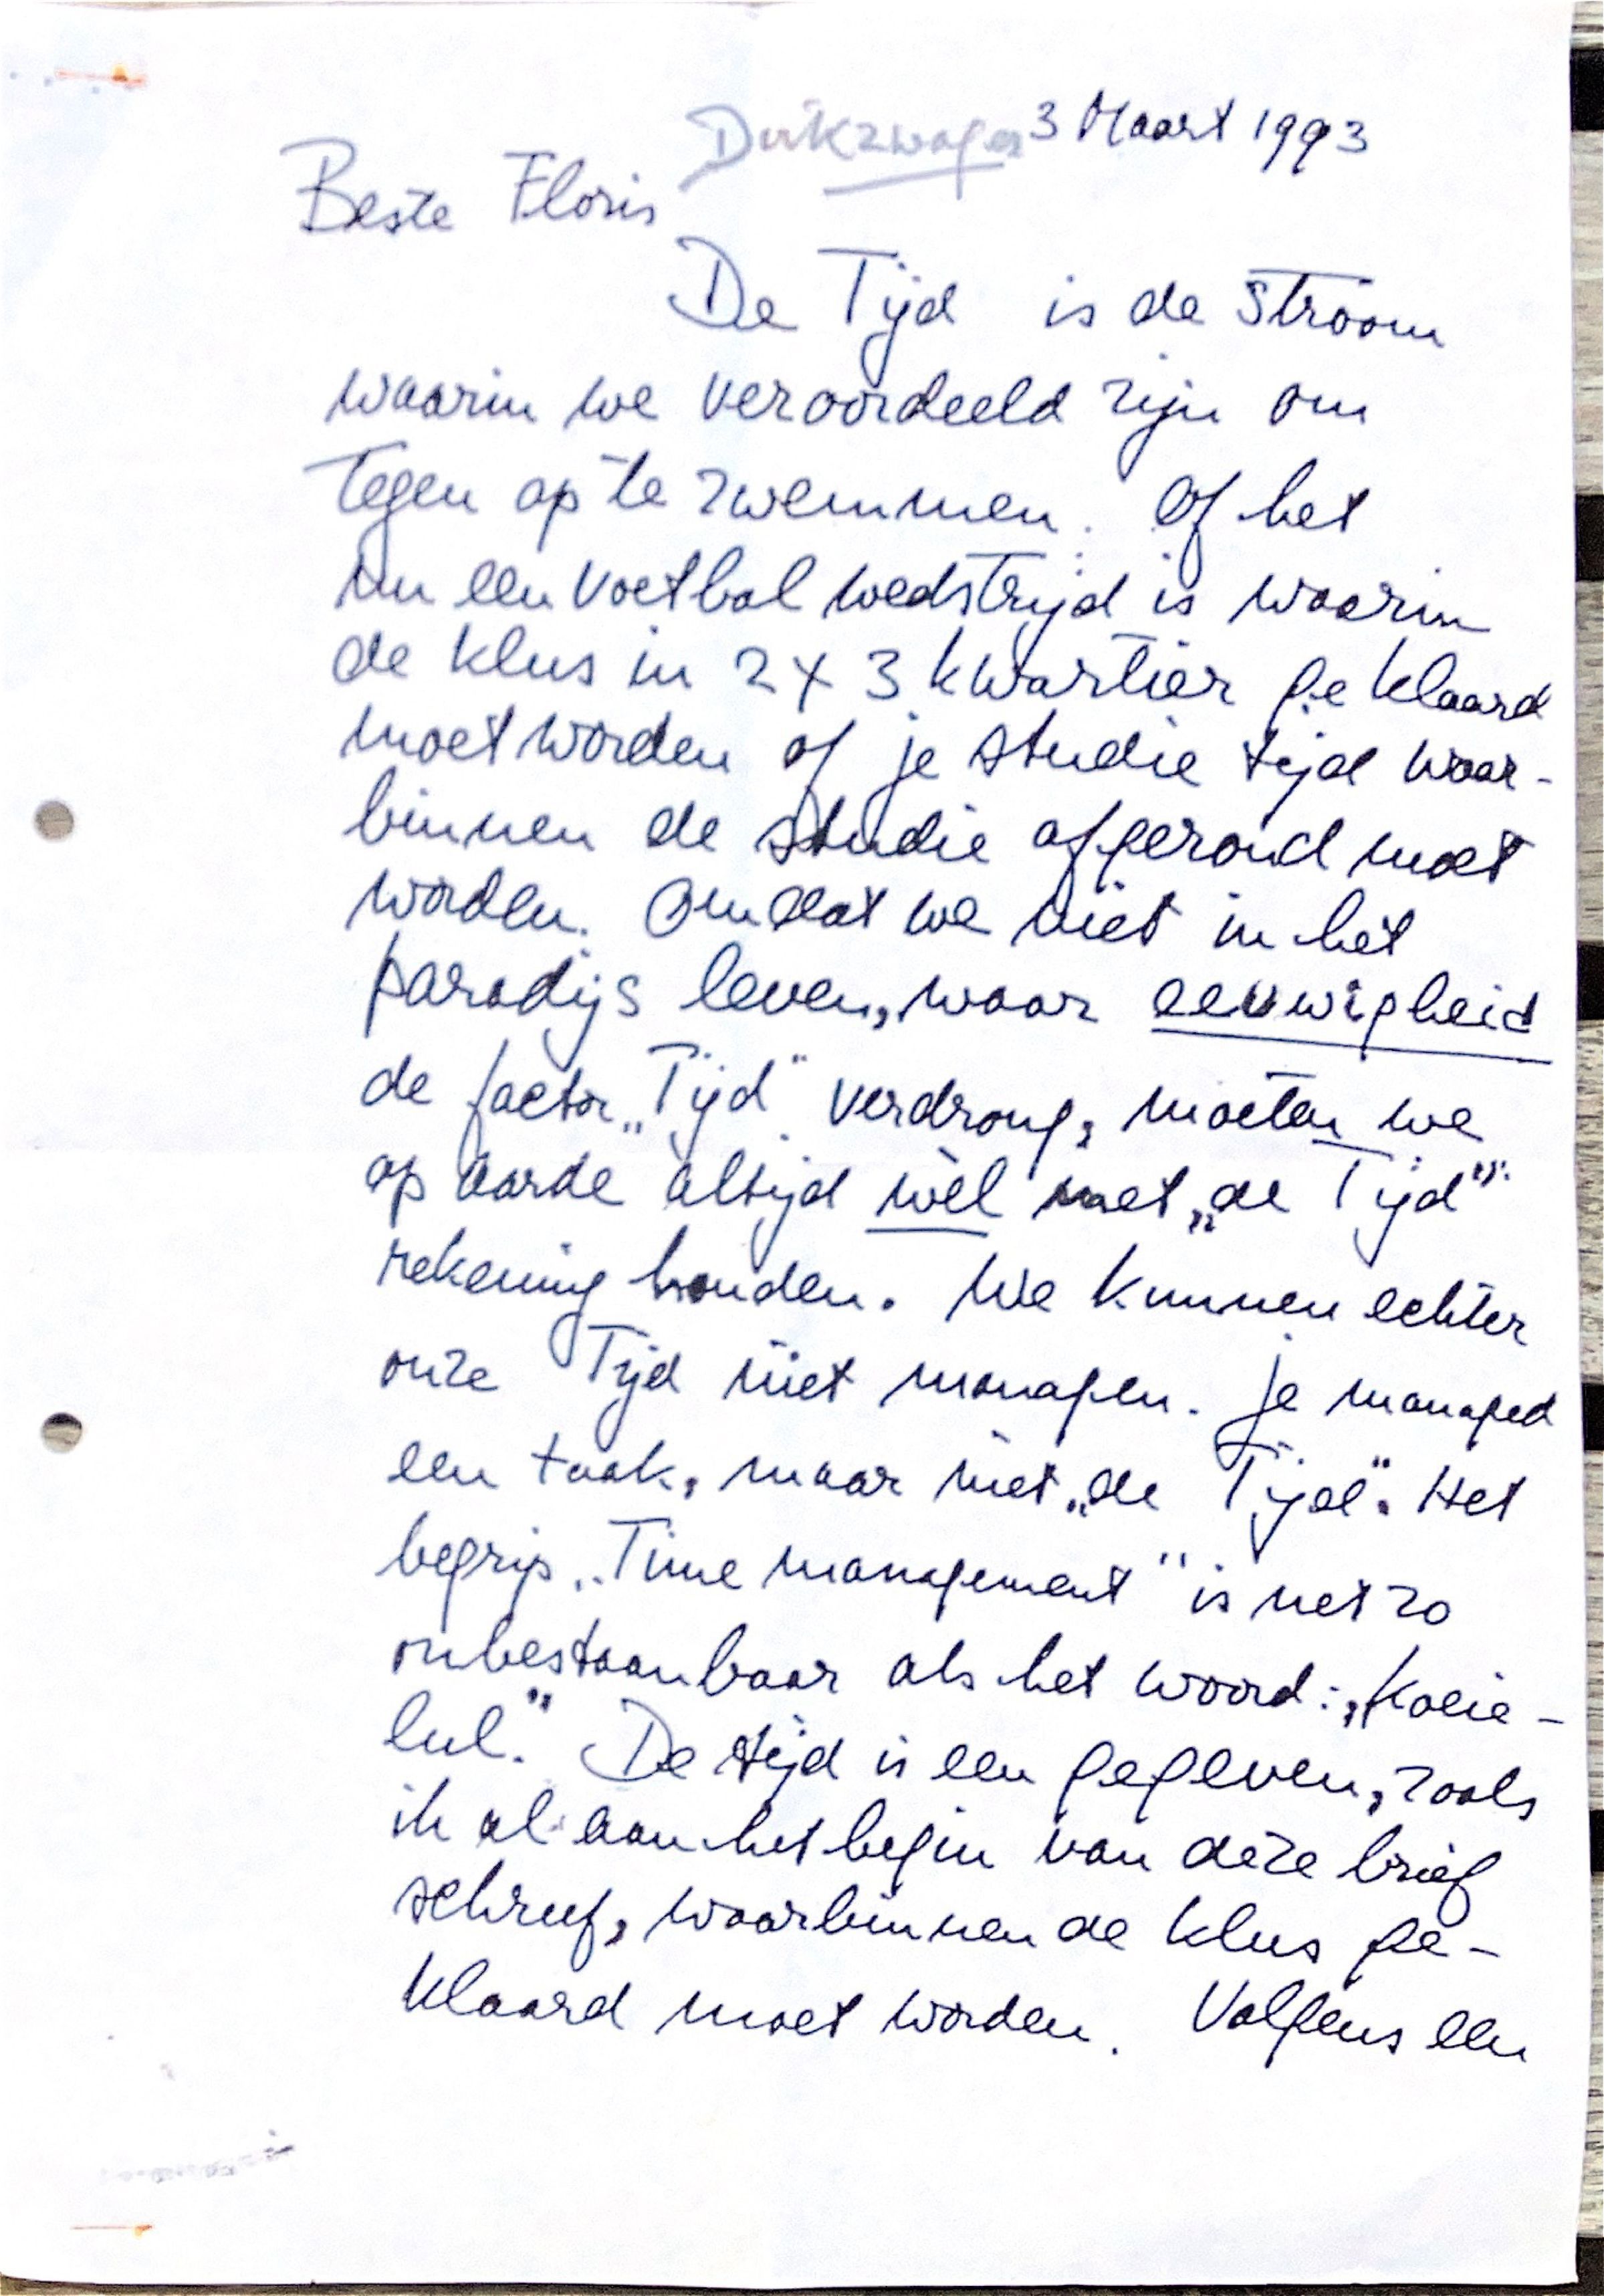 Dirkzwager 3 Maart 1993
Beste Floris
De Tijd is de stroom
waarin we veroordeeld zijn om
tegen op te zwemmen. Of het
nu een voetbal wedstrijd is waarin
de klus in 2 x 3 kwartier geklaard
moet worden of je studie tijd waar-
binnen de studie afgerond moet
worden. Omdat we niet in het
paradijs leven, waar eeuwigheid
de factor „Tijd" verdrong, moeten we
op aarde altijd wèl met „de Tijd"
rekening houden. We kunnen echter
onze Tijd niet managen. Je managed
een taak, maar niet „de Tijd". Het
begrip „Time management" is net zo
onbestaanbaar als het woord: „Koeie-
lul." De tijd is een gegeven, zoals
ik al aan het begin van deze brief
schreef, waarbinnen de klus ge-
klaard moet worden. Volgens een